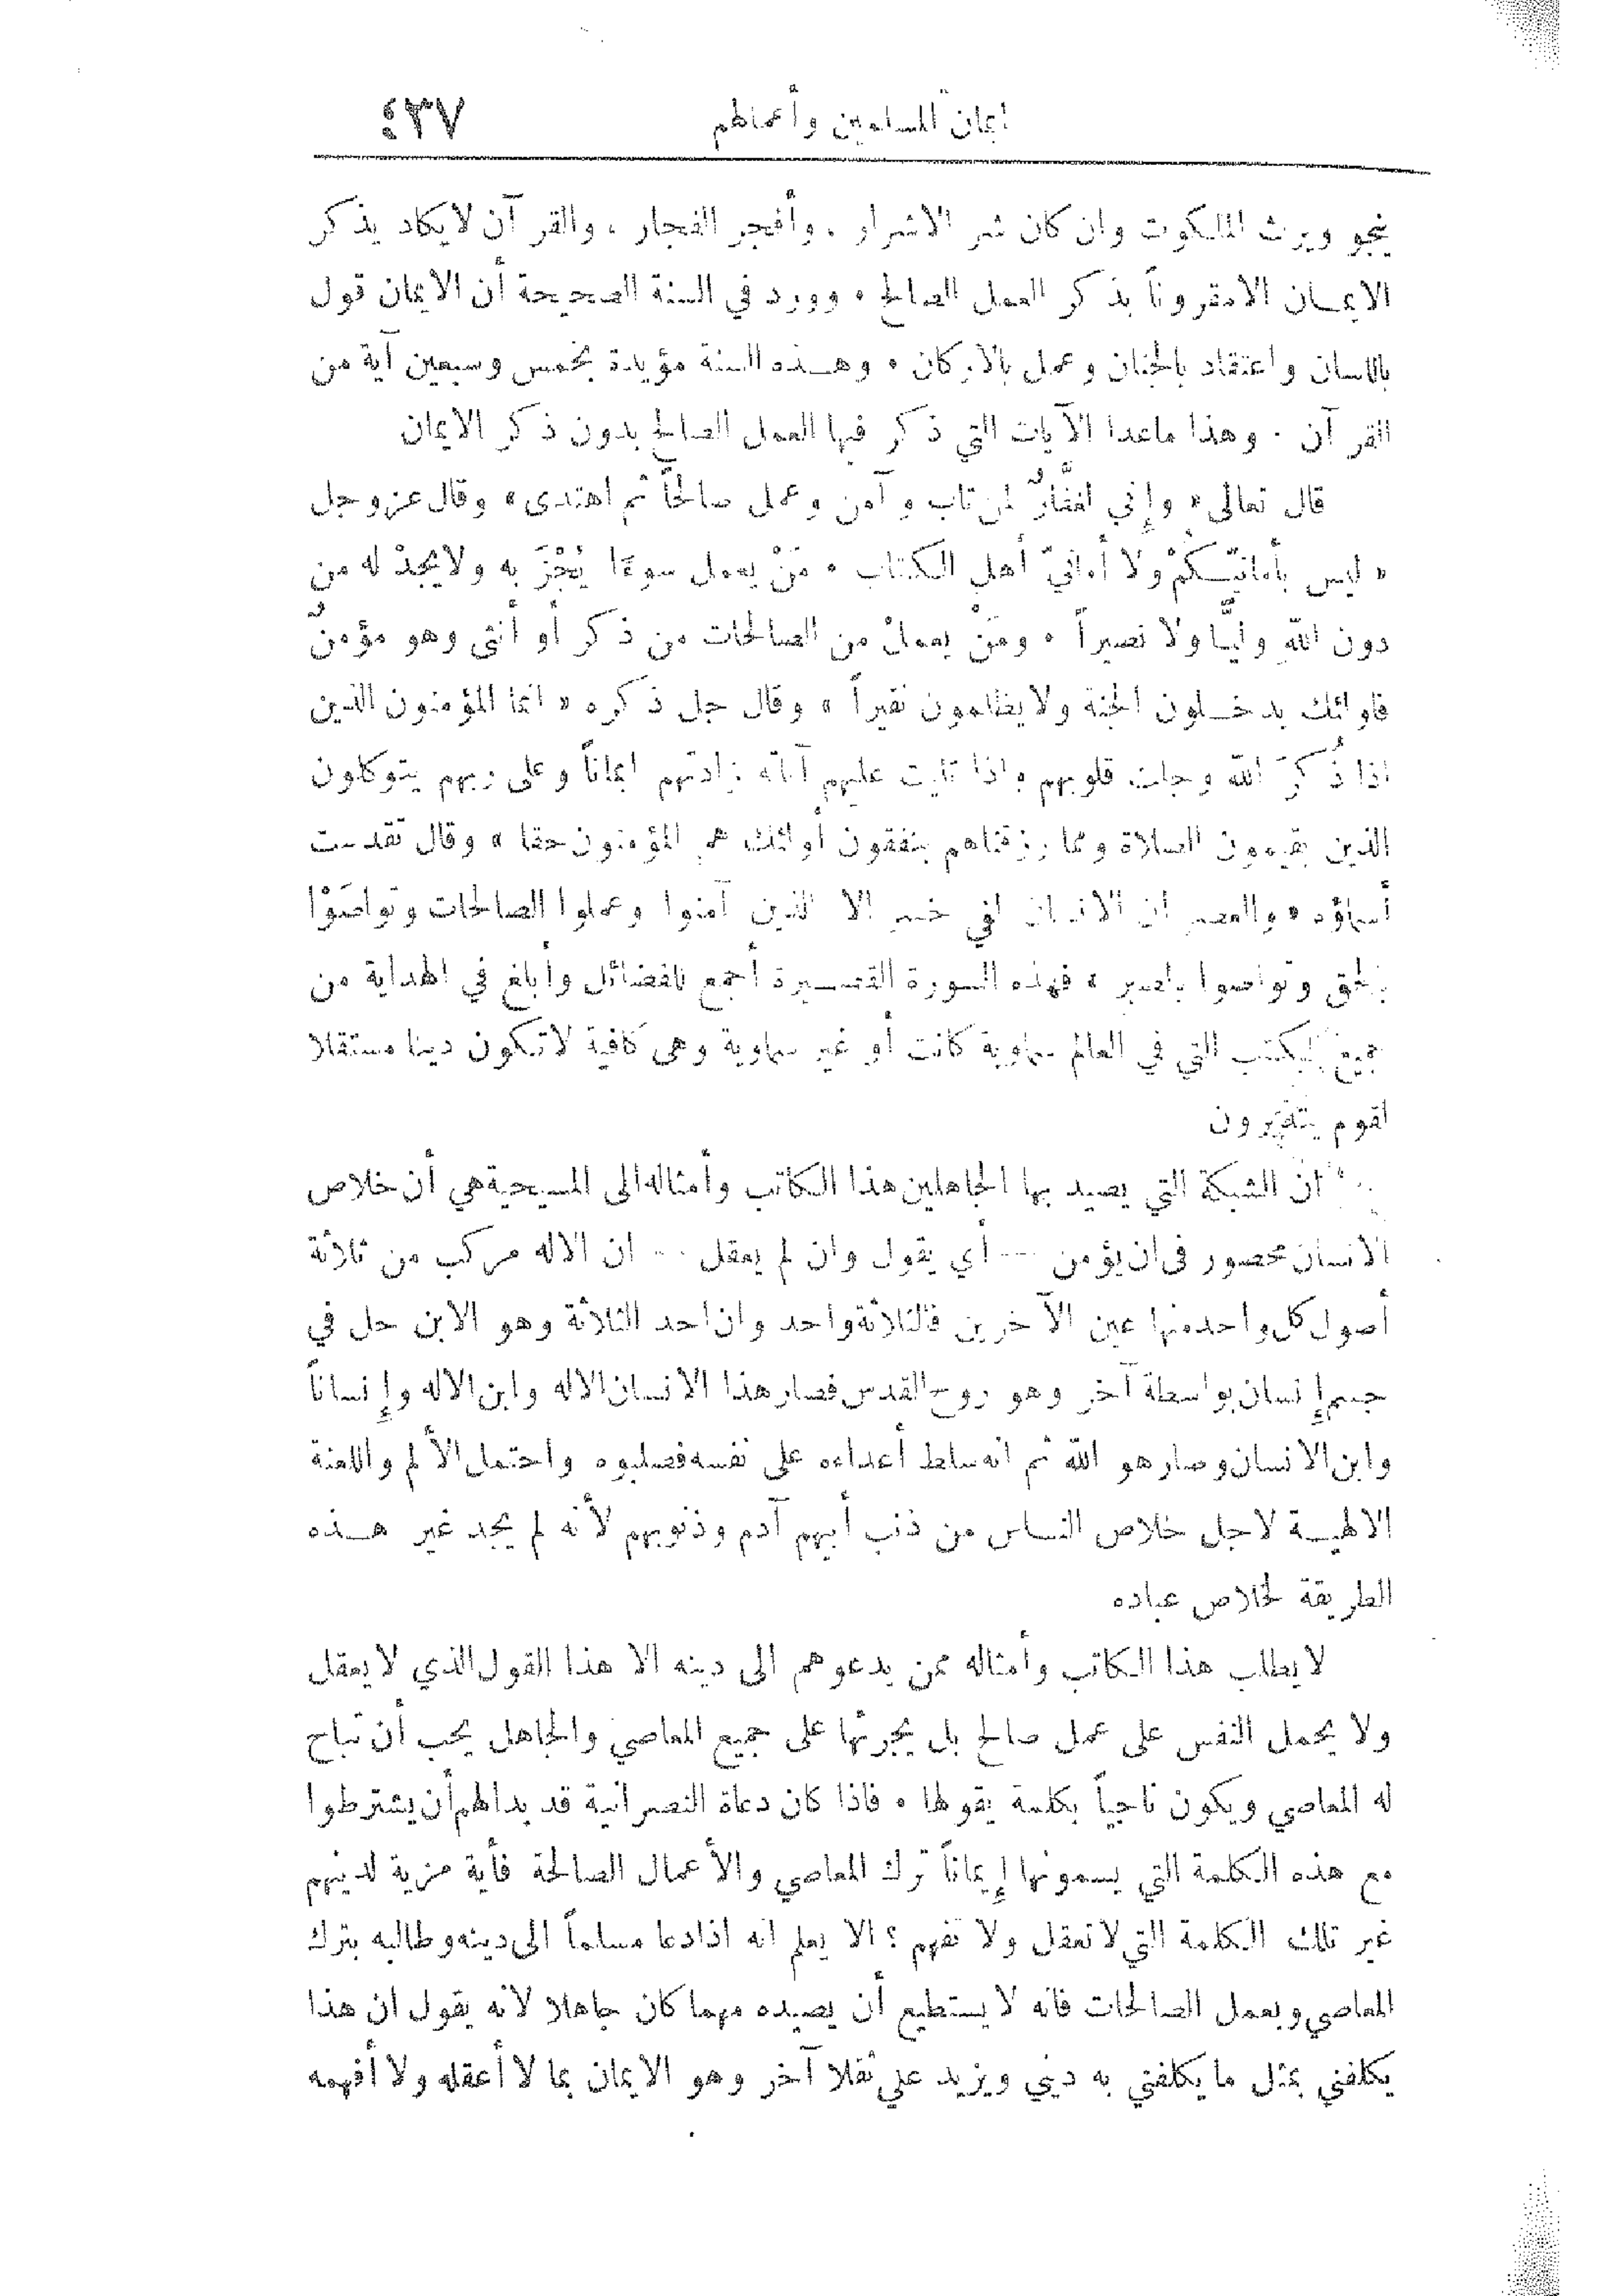 ايمان المسلمين وأعمالهم ٤٣٧
ينجو ويرث الملكوت وان كان شر الاشرار ، وأفجر الفجار ، والقرآن لا يكاد يذكر
الايمـان الا مقروناً بذكر العمل الصالح ٠ وورد في السنة الصحيحة أن الايمان قول
باللسان واعتقاد بالجنان وعمل بالاركان ٠ وهـذه السنة مؤيدة بخمس وسبعين آية من
القرآن ٠ وهذا ماعدا الآيات التي ذكر فيها العمل الصالح بدون ذكر الايمان
قال تعالى « وإني لغفَّارٌ لمن تاب وآمن وعمل صالحاً ثم اهتدى » وقال عز وجل
« ليس بأمانيّـكمْ ولا أمانيّ أهل الكتاب ٠ مَنْ يعمل سوءًا يُجْزَ به ولا يجدْ له من
دون الله وليًّا ولا نصيراً ٠ ومَنْ يعملْ من الصالحات من ذكر أو أنثى وهو مؤمنٌ
فاولئك يدخـلون الجنة ولا يظلمون نقيراً » وقال جل ذكره « انما المؤمنون الذين
اذا ذُكرَ الله وجلت قلوبهم واذا تليت عليهم آياته زادتهم ايماناً وعلى ربهم يتوكلون
الذين يقيمون الصلاة ومما رزقناهم ينفقون أولئك هم المؤمنون حقا » وقال تقدست
أسماؤه « والعصر ان الانسان لفي خسر الا الذين آمنوا وعملوا الصالحات وتواصَوْا
بالحق وتواصوا بالصبر » فهذه السورة القصـيرة أجمع للفضائل وأبلغ في الهداية من
جميع الكتب التي في العالم سماوية كانت أو غير سماوية وهى كافية لأتكون دينا مستقلا
لقوم يتفكرون
ان الشبكة التي يصيد بها الجاهلين هذا الكاتب وأمثاله الى المسيحية هي أن خلاص
الانسان محصور فى ان يؤمن — أي يقول وان لم يعقل — ان الاله مركب من ثلاثة
أصول كل واحد منها عين الآخرين فالثلاثة واحد وان احد الثلاثة وهو الابن حل في
جسم إنسان بواسطة آخر وهو روح القدس فصار هذا الانسان الاله وابن الاله وإنساناً
وابن الانسان وصار هو الله ثم انه سلط أعداءه على نفسه فصلبوه واحتمل الألم واللعنة
الالهيـة لاجل خلاص النـاس من ذنب أبيهم آدم وذنوبهم لأنه لم يجد غير هـذه
الطريقة لخلاص عباده
لا يطلب هذا الكاتب وأمثاله ممن يدعوهم الى دينه الا هذا القول الذي لا يعقل
ولا يحمل النفس على عمل صالح بل يجرئها على جميع المعاصي والجاهل يحب أن تباح
له المعاصي ويكون ناجياً بكلمة يقولها ٠ فاذا كان دعاة النصرانية قد بدا لهم أن يشترطوا
مع هذه الكلمة التي يسمونها إيماناً ترك المعاصي والأعمال الصالحة فأية مزية لدينهم
غير تلك الكلمة التي لا تعقل ولا تفهم ؟ الا يعلم انه اذا دعا مسلماً الى دينه وطالبه بترك
المعاصي وبعمل الصالحات فانه لا يستطيع أن يصيده مهما كان جاهلا لانه يقول ان هذا
يكلفني بمثل ما يكلفني به ديني ويزيد علي ثقلا آخر وهو الايمان بما لا أعقله ولا أفهمه